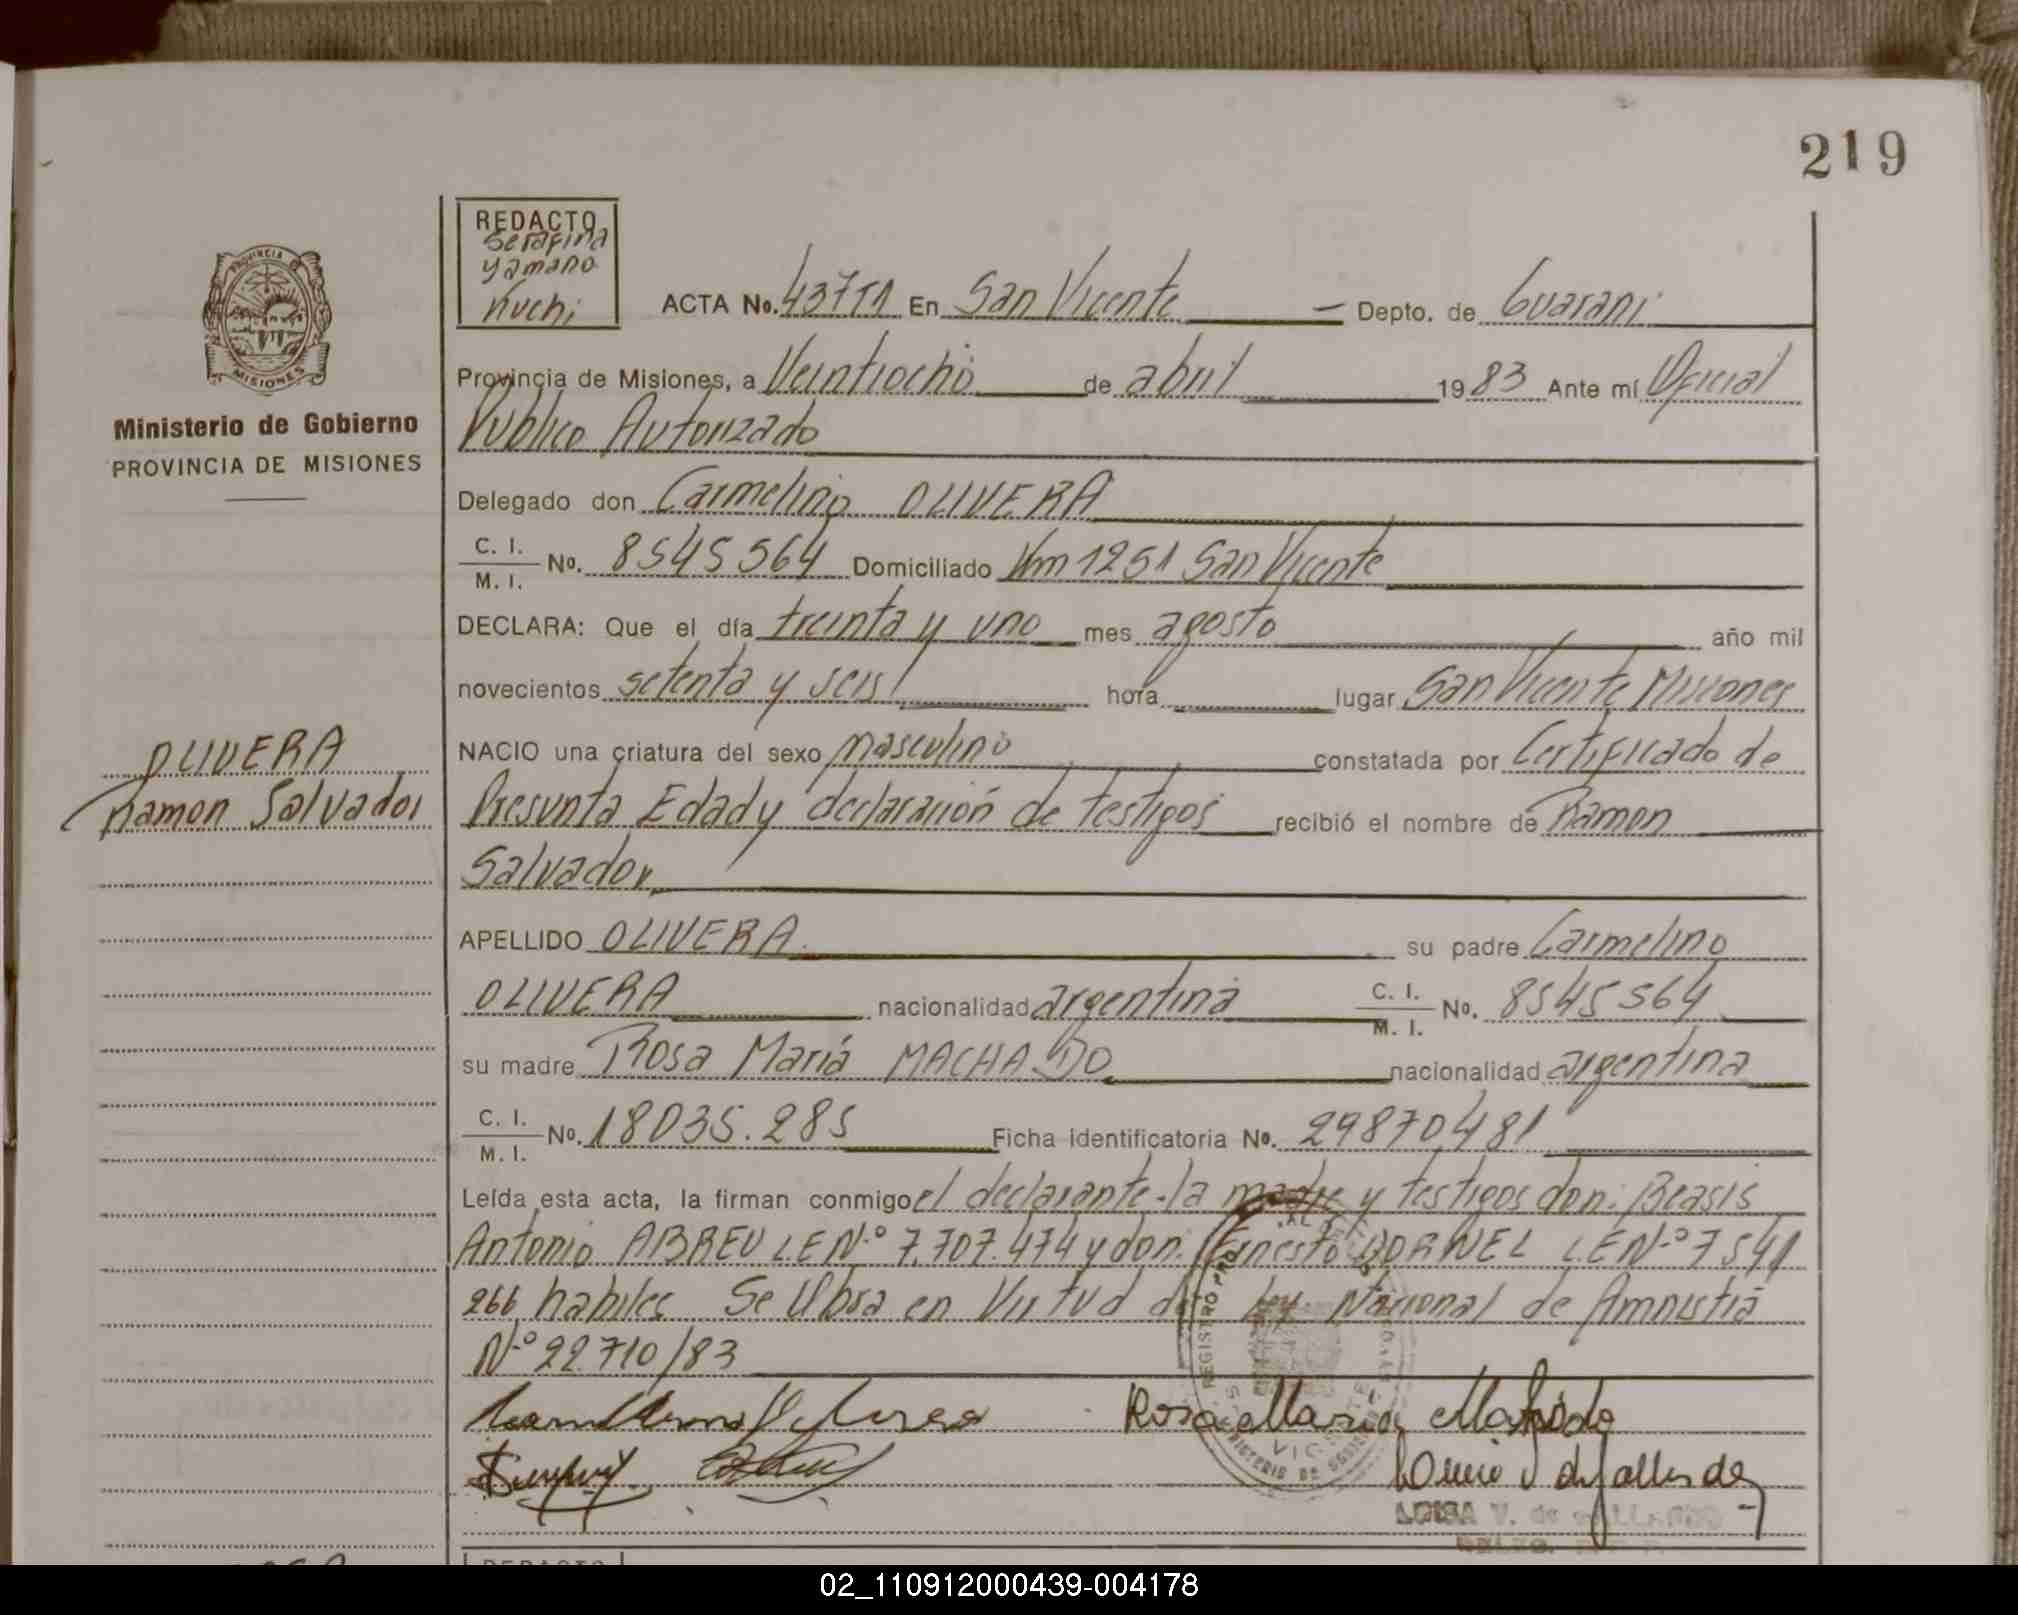 219
REDACTO
Serafina
Yamano
Kuchi
ACTA No. 437T1 En San Vicente — Depto. de Guarani
PROVINCIA
MISIONES
Provincia de Misiones, a Veintiocho de abril 1983 Ante mí Oficial
Público Autorizado
Ministerio de Gobierno
PROVINCIA DE MISIONES
Delegado don Carmelino OLIVERA
C. I. / M. I. No. 8545564 Domiciliado Km 1251 San Vicente
DECLARA: Que el día treinta y uno mes agosto año mil
novecientos setenta y seis hora lugar San Vicente Misiones
OLIVERA
Ramon Salvador
NACIO una criatura del sexo masculino constatada por Certificado de
Presunta Edad y declaración de testigos recibió el nombre de Ramon
Salvador
APELLIDO OLIVERA su padre Carmelino
OLIVERA nacionalidad argentina C. I. / M. I. No. 8545564
su madre Rosa María MACHADO nacionalidad argentina
C. I. / M. I. No. 18035.285 Ficha identificatoria No. 29870481
Leída esta acta, la firman conmigo el declarante-la madre y testigos don: Beasis
Antonio ABREU L.E Nº 7.707.474 y don: Ernesto DORNEL L.E Nº 7541
266 habiles Se labra en Virtud de Ley Nacional de Amnistiá
Nº 22.710/83
Rosa Maria Machado
LUISA V. de
02_110912000439-004178